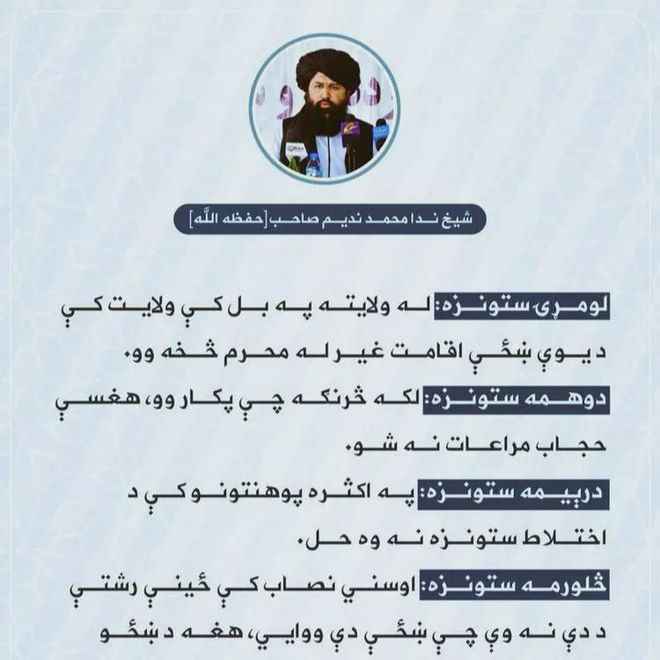 شیخ ندا محمد ندیم صاحب [حفظه الله]
لومړۍ ستونزه: له ولایته په بل کې ولایت کې
د یوې ښځې اقامت غیر له محرم څخه وو.
دوهمه ستونزه: لکه څرنګه چې پکار وو، هغسې
حجاب مراعات نه شو.
درېیمه ستونزه: په اکثره پوهنتونو کې د
اختلاط ستونزه نه وه حل.
څلورمه ستونزه: اوسني نصاب کې ځینې رشتې
د دې نه وې چې ښځې دې ووایي، هغه د ښځو